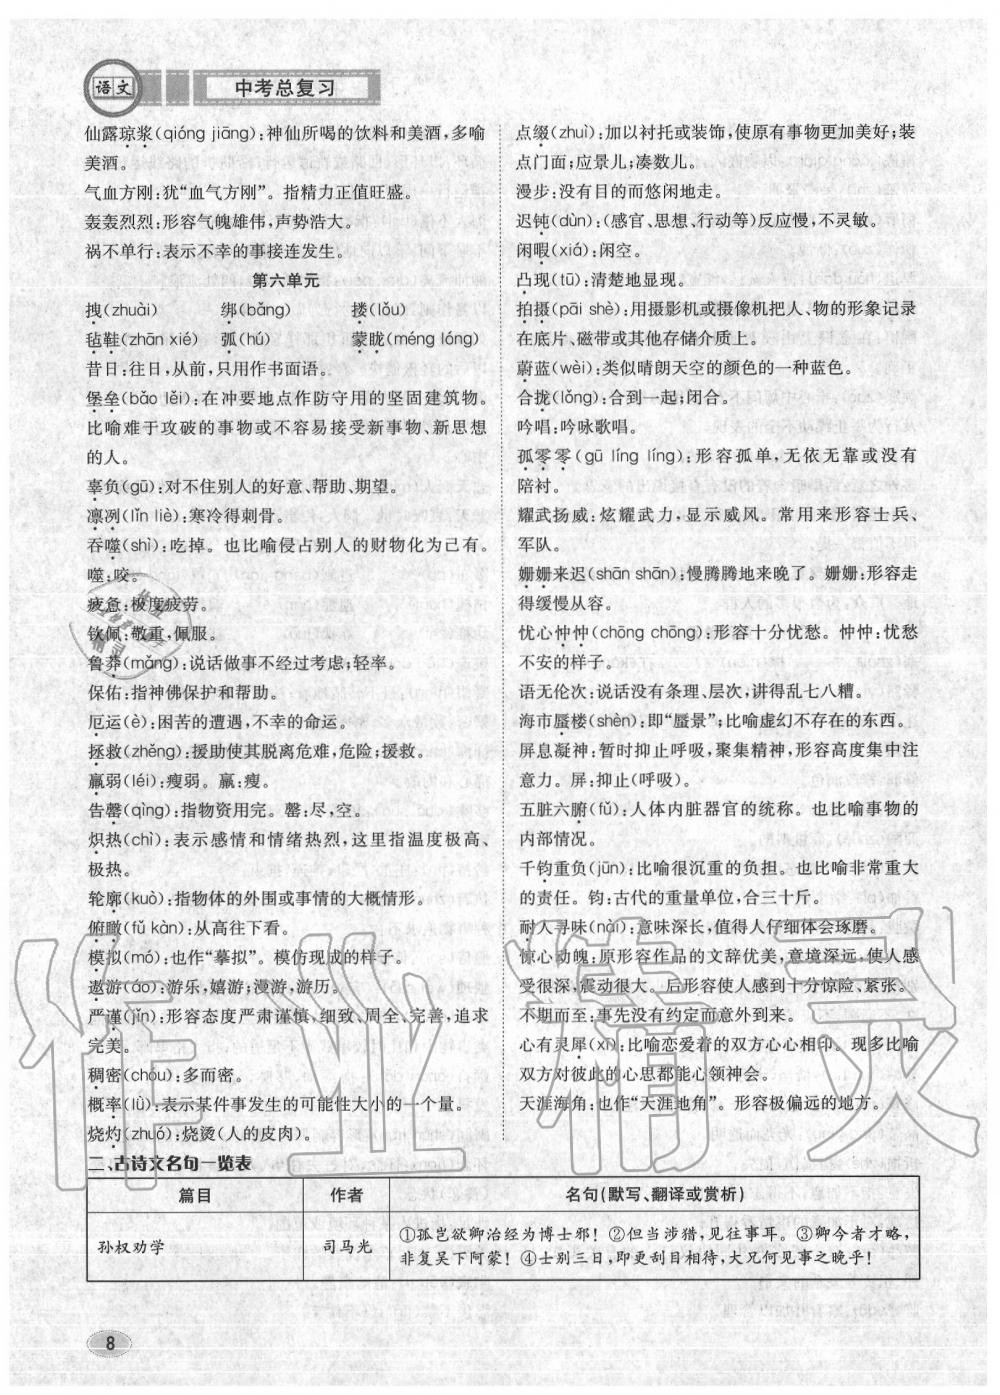 语文
中考总复习
仙露琼浆(qióng jiāng):神仙所喝的饮料和美酒,多喻
美酒。
气血方刚:犹“血气方刚”。指精力正值旺盛。
轰轰烈烈:形容气魄雄伟,声势浩大。
祸不单行:表示不幸的事接连发生。
第六单元
拽(zhuài) 绑(bǎng) 搂(lǒu)
毡鞋(zhān xié) 弧(hú) 蒙眬(méng lóng)
昔日:往日,从前,只用作书面语。
堡垒(bǎo lěi):在冲要地点作防守用的坚固建筑物。
比喻难于攻破的事物或不容易接受新事物、新思想
的人。
辜负(gū):对不住别人的好意、帮助、期望。
凛冽(lǐn liè):寒冷得刺骨。
吞噬(shì):吃掉。也比喻侵占别人的财物化为己有。
噬:咬。
疲惫:极度疲劳。
钦佩:敬重,佩服。
鲁莽(mǎng):说话做事不经过考虑;轻率。
保佑:指神佛保护和帮助。
厄运(è):困苦的遭遇,不幸的命运。
拯救(zhěng):援助使其脱离危难,危险;援救。
羸弱(léi):瘦弱。羸:瘦。
告罄(qìng):指物资用完。罄:尽,空。
炽热(chì):表示感情和情绪热烈,这里指温度极高、
极热。
轮廓(kuò):指物体的外围或事情的大概情形。
俯瞰(fǔ kàn):从高往下看。
模拟(mó):也作“摹拟”。模仿现成的样子。
遨游(áo):游乐,嬉游;漫游,游历。
严谨(jǐn):形容态度严肃谨慎,细致、周全、完善,追求
完美。
稠密(chóu):多而密。
概率(lǜ):表示某件事发生的可能性大小的一个量。
烧灼(zhuó):烧烫(人的皮肉)。
点缀(zhuì):加以衬托或装饰,使原有事物更加美好;装
点门面;应景儿;凑数儿。
漫步:没有目的而悠闲地走。
迟钝(dùn):(感官、思想、行动等)反应慢,不灵敏。
闲暇(xiá):闲空。
凸现(tū):清楚地显现。
拍摄(pāi shè):用摄影机或摄像机把人、物的形象记录
在底片、磁带或其他存储介质上。
蔚蓝(wèi):类似晴朗天空的颜色的一种蓝色。
合拢(lǒng):合到一起;闭合。
吟唱:吟咏歌唱。
孤零零(gū líng líng):形容孤单,无依无靠或没有
陪衬。
耀武扬威:炫耀武力,显示威风。常用来形容士兵、
军队。
姗姗来迟(shān shān):慢腾腾地来晚了。姗姗:形容走
得缓慢从容。
忧心忡忡(chōng chōng):形容十分忧愁。忡忡:忧愁
不安的样子。
语无伦次:说话没有条理、层次,讲得乱七八糟。
海市蜃楼(shèn):即“蜃景”;比喻虚幻不存在的东西。
屏息凝神:暂时抑止呼吸,聚集精神,形容高度集中注
意力。屏:抑止(呼吸)。
五脏六腑(fǔ):人体内脏器官的统称。也比喻事物的
内部情况。
千钧重负(jūn):比喻很沉重的负担。也比喻非常重大
的责任。钧:古代的重量单位,合三十斤。
耐人寻味(nài):意味深长,值得人仔细体会琢磨。
惊心动魄:原形容作品的文辞优美,意境深远,使人感
受很深,震动很大。后形容使人感到十分惊险、紧张。
不期而至:事先没有约定而意外到来。
心有灵犀(xī):比喻恋爱着的双方心心相印。现多比喻
双方对彼此的心思都能心领神会。
天涯海角:也作“天涯地角”。形容极偏远的地方。
二、古诗文名句一览表
篇目 作者 名句(默写、翻译或赏析)
孙权劝学 司马光 ①孤岂欲卿治经为博士邪!②但当涉猎,见往事耳。③卿今者才略,
非复吴下阿蒙!④士别三日,即更刮目相待,大兄何见事之晚乎!
8
作业精灵